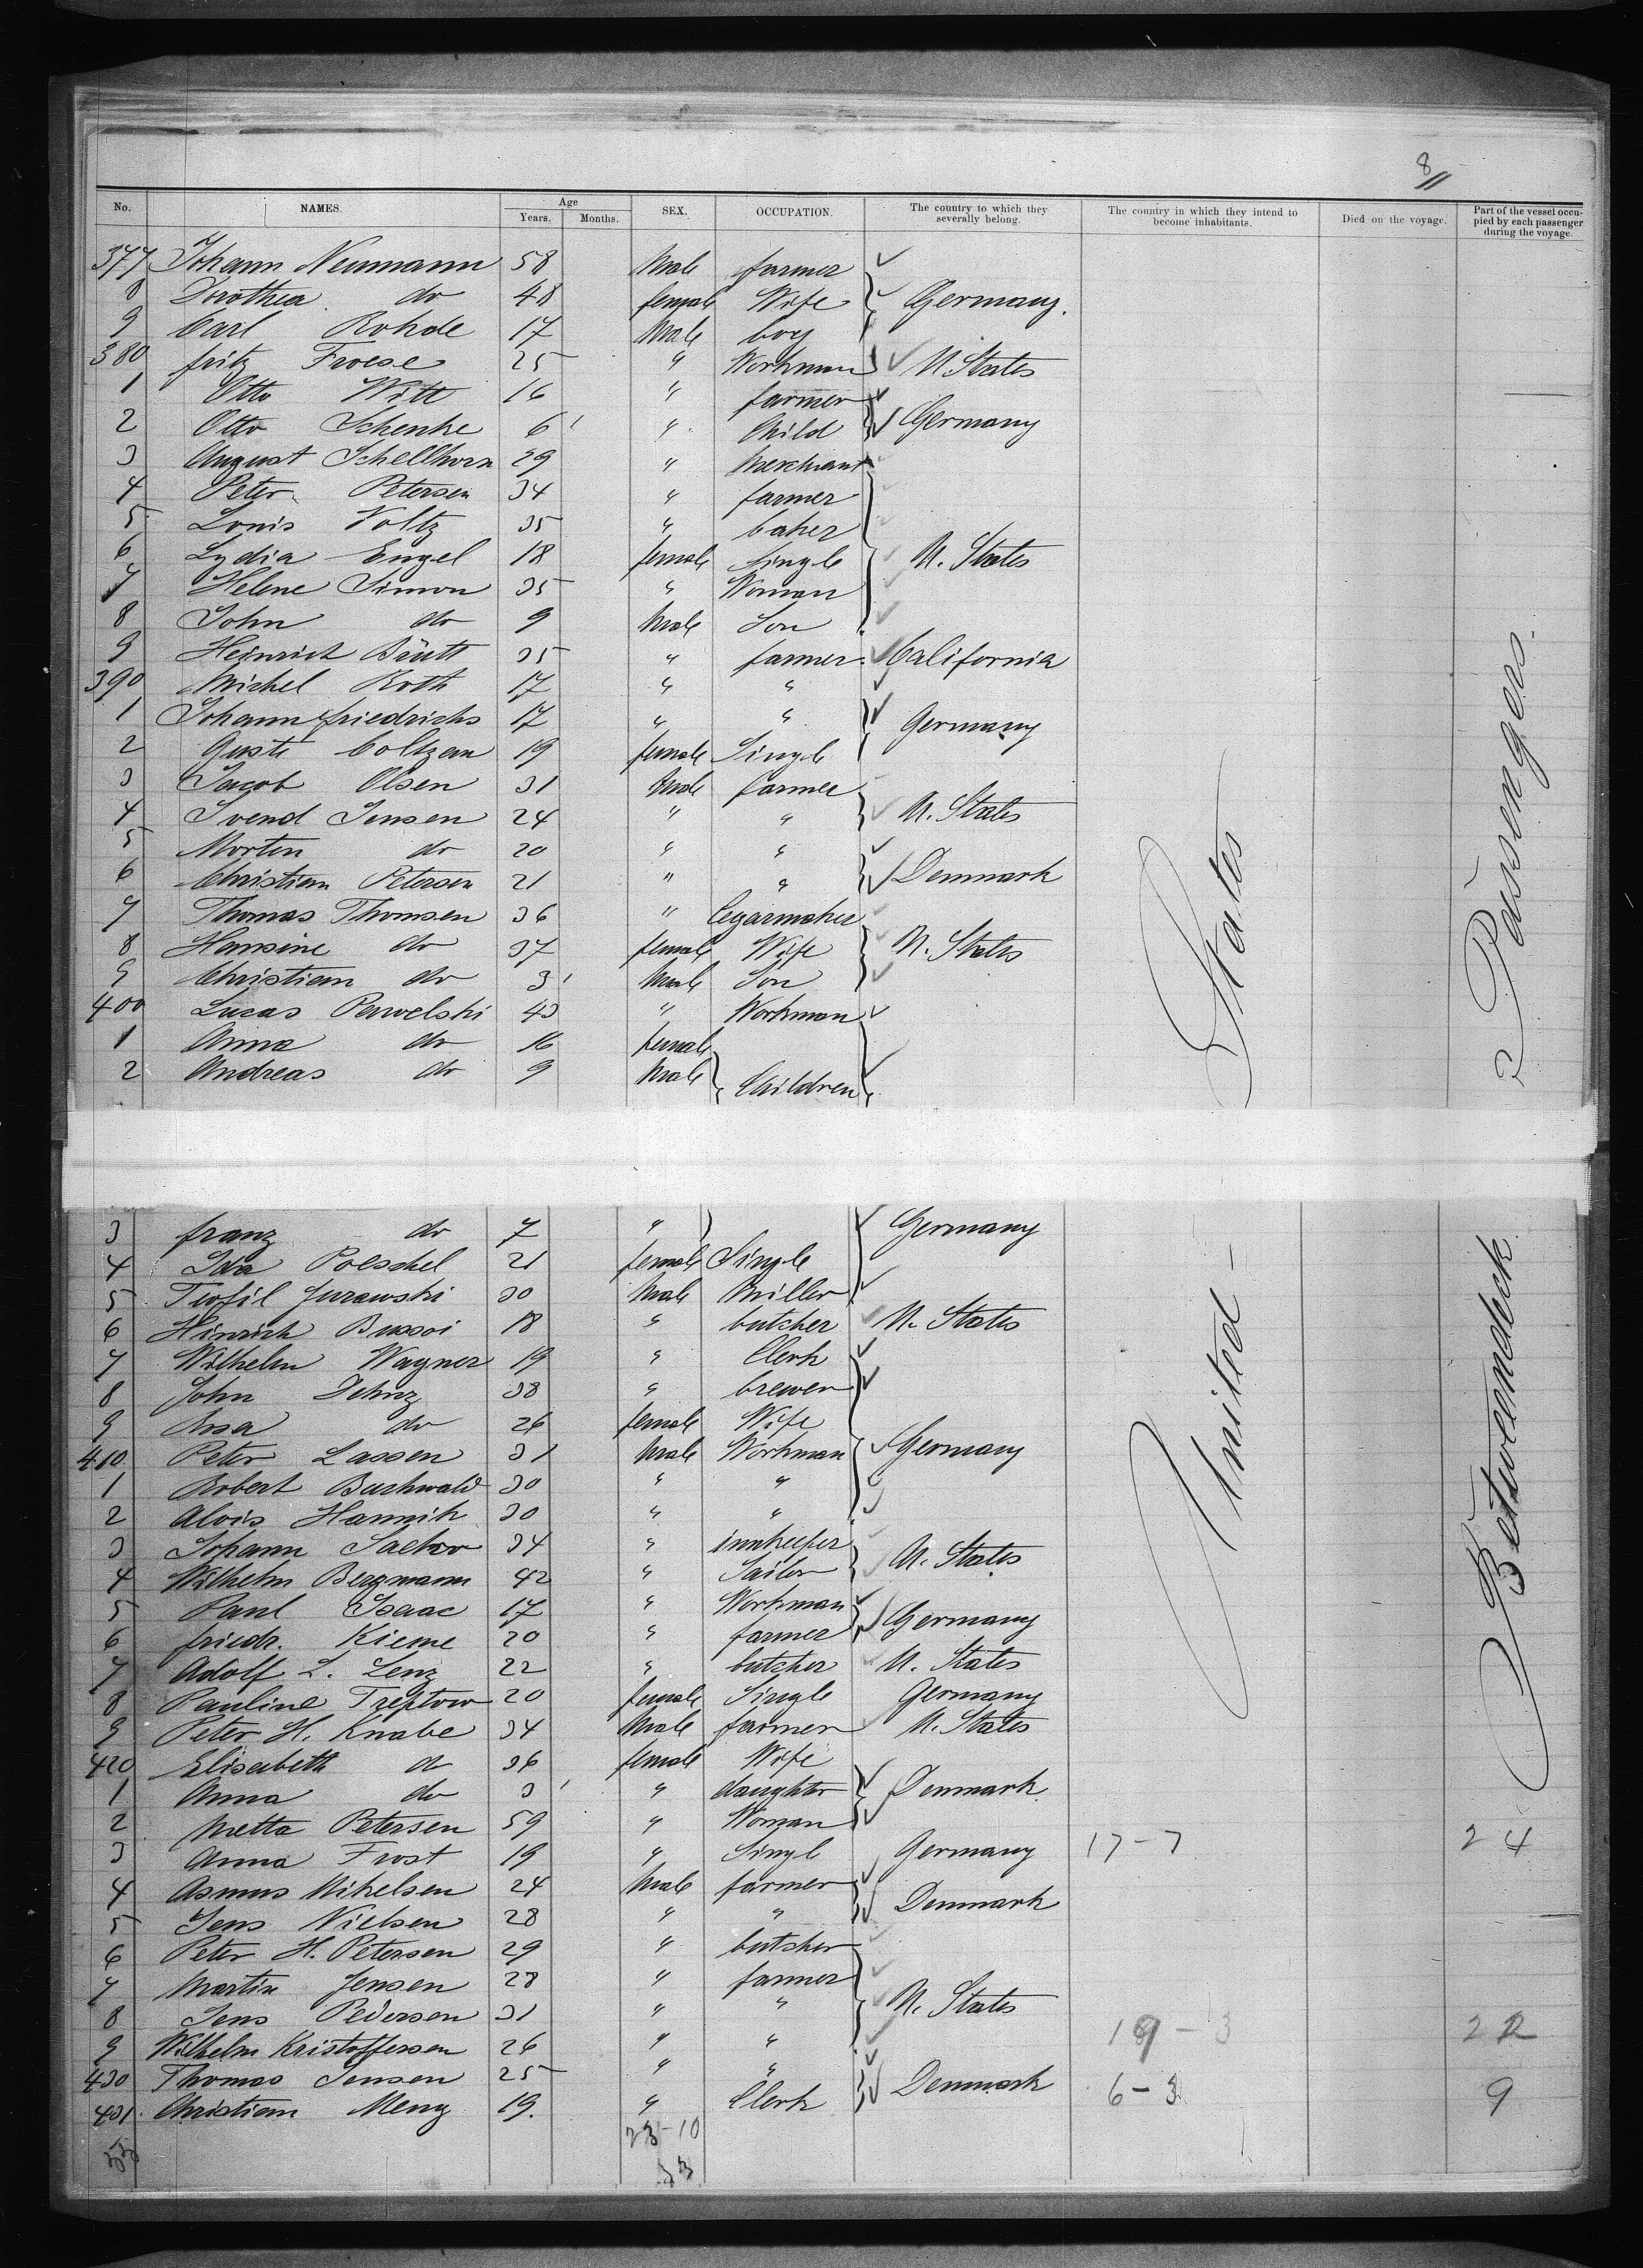 8/11
No. NAMES. Age Years. Months. SEX. OCCUPATION. The country to which they severally belong. The country in which they intend to become inhabitants. Died on the voyage. Part of the vessel occupied by each passenger during the voyage.
377 Johann Neumann 58 Male farmer
8 Dorothea do 48 female Wife Germany.
9 Carl Rohde 17 Male boy
380 fritz Froese 25 " Workman U. States
1 Otto Witt 16 " farmer
2 Otto Schenke 6 " Child Germany
3 August Schellhorn 29 " Merchant
4 Peter Petersen 34 " farmer
5 Louis Voltz 35 " baker
6 Lydia Engel 18 female Single U. States
7 Helene Simon 35 " Woman
8 John do 9 Male Son
9 Heinrich Brütt 35 " farmer California
390 Michel Roth 17 " "
1 Johann friedrichs 17 " " Germany
2 Guste Coltzau 19 female Single
3 Jacob Olsen 31 Male farmer
4 Svend Jensen 24 " " U. States
5 Morten do 20 " "
6 Christian Petersen 21 " " Denmark
7 Thomas Thomsen 36 " Cegarmaker
8 Hansine do 37 female Wife U. States
9 Christian do 3 Male Son
400 Lucas Pawelski 43 " Workman
1 Anna do 16 female
2 Andreas do 9 Male Children
3 franz do 7 " Germany
4 Ida Poeschel 21 female Single
5 Teofil Jurawski 30 Male Miller
6 Hinrich Bussoi 18 " butcher U. States
7 Wilhelm Wagner 19 " Clerk
8 John 38 " brewer
9 Rosa do 26 female Wife
410 Peter Lassen 31 Male Workman Germany
1 Robert Buchwald 30 " "
2 Alois Hannik 30 " "
3 Johann 34 " innkeeper
4 Wilhelm Bergmann 42 " Sailor U. States
5 Paul Isaac 17 " Workman
6 friedr. Kieme 20 " farmer Germany
7 Adolf L. Lenz 22 " butcher U. States
8 Pauline Treptow 20 female Single Germany
9 Peter H. Knabe 34 Male farmer U. States
420 Elisabeth do 36 female Wife
1 Anna do 3 " daughter Denmark
2 Metta Petersen 59 " Woman
3 Anna Frost 19 " Singl Germany 17-7 24
4 Asmus Mikelsen 24 Male farmer
5 Jens Nielsen 28 " " Denmark
6 Peter H. Petersen 29 " butcher
7 Martin Jensen 28 " farmer
8 Jens Pedersen 31 " " U. States
9 Wilhelm Kristoffersen 26 " " 19-3 22
430 Thomas Jensen 25 " "
431 Christian Meng 19. " Clerk Denmark 6-3 9
23-10
33
United States
Betweendeck Passengers.